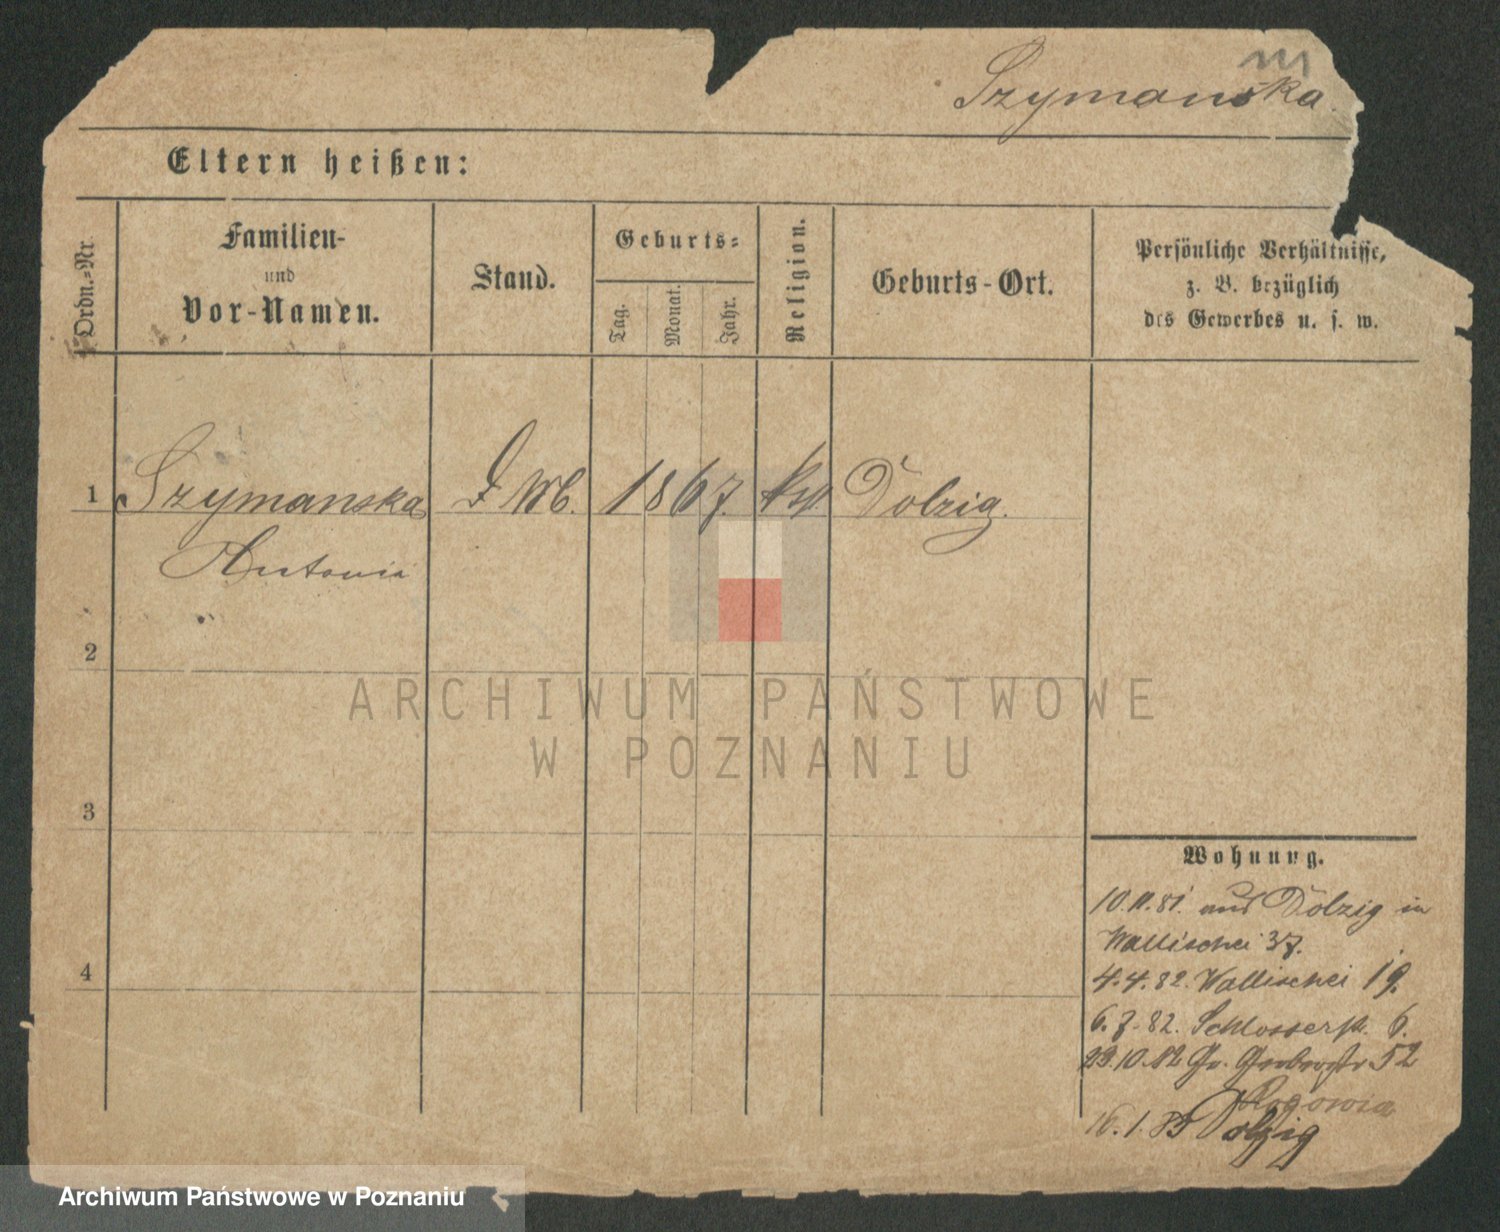 Szymanska.
Eltern heißen:
Ordn.-Nr.
Familien-
und
Vor-Namen.
Stand.
Geburts-
Tag.
Monat.
Jahr.
Religion.
Geburts-Ort.
Persönliche Verhältnisse,
z. B. bezüglich
des Gewerbes u. s. w.
1 Szymanska 1867. Dolzig.
Antonia
2
3
4
Wohnung.
10.11.81. aus Dolzig in
Wallischei 37.
4.4.82. Wallischei 19.
6.7.82. Schlosserstr. 6.
23.10.82 Gr. Gerberstr 52
16.1.85 Dolzig
ARCHIWUM PAŃSTWOWE
W POZNANIU
Archiwum Państwowe w Poznaniu